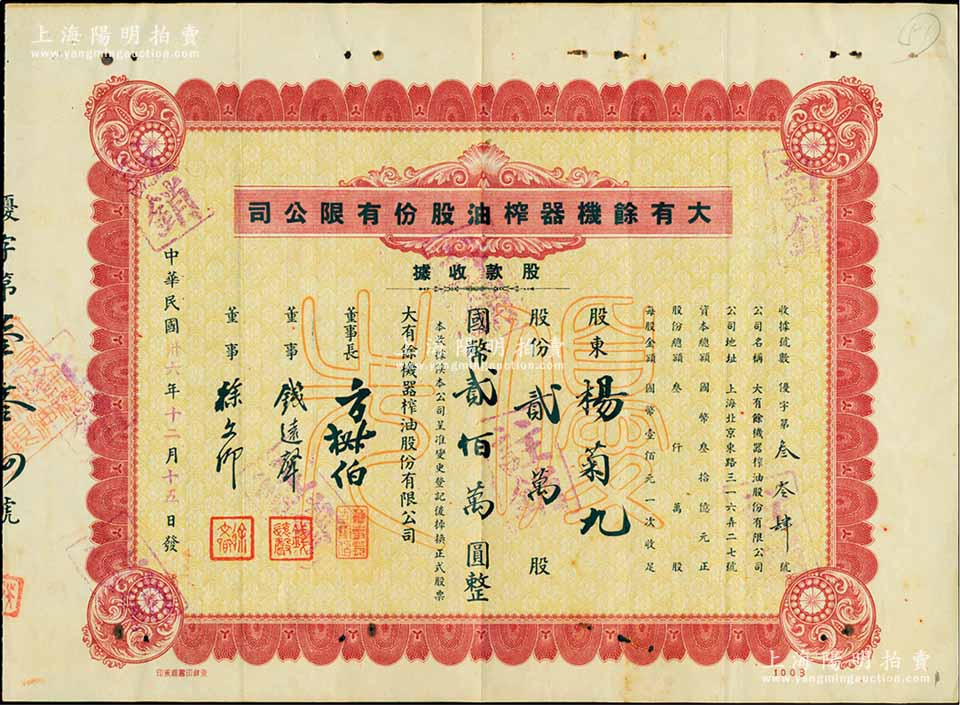 上海陽明拍賣
www.yangmingauction.com
大有餘機器榨油股份有限公司
股款收據
收據號數 優字第叁叁肆號
公司名稱 大有餘機器榨油股份有限公司
公司地址 上海北京東路三一六弄二七號
資本總額 國幣叁拾億元正
股份總額 叁仟萬股
每股金額 國幣壹佰元一次收足
股東 楊菊九
股份 貳萬 股
國幣貳佰萬圓整
本收據俟本公司呈准變更登記後掉換正式股票
大有餘機器榨油股份有限公司
董事長 方樹伯
董事 錢遠聲
董事 徐文卿
中華民國卅六年十二月十五日發
註銷
優字第
號
1003
上海陽明拍賣
www.yangmingauction.com
上海陽明拍賣
www.yangmingauction.com